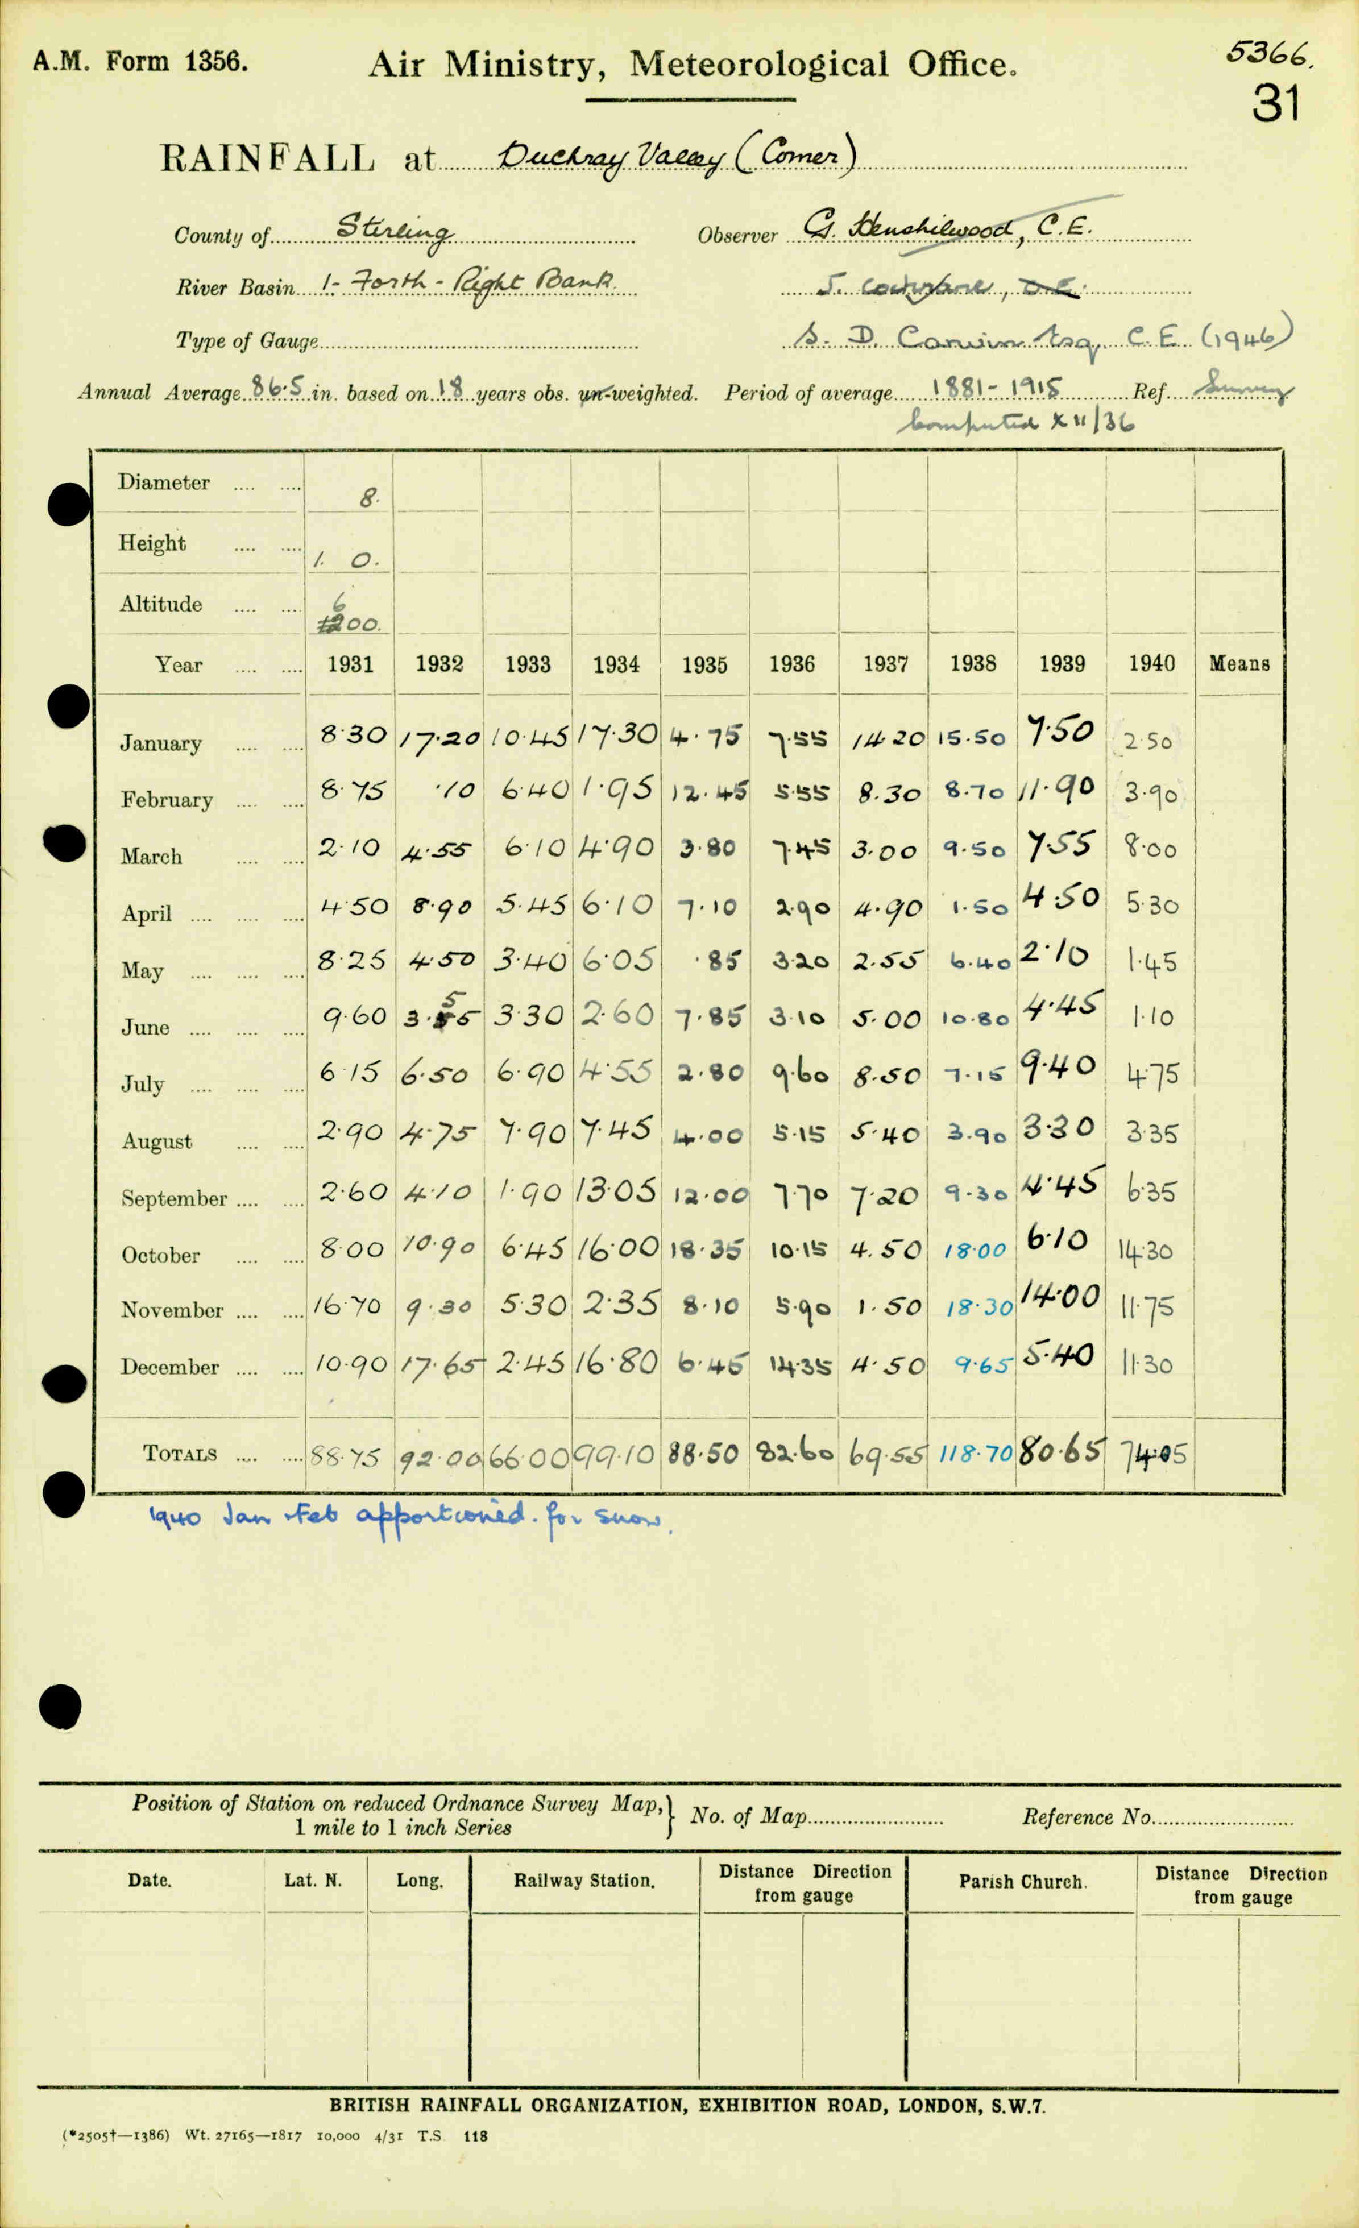 A.M. Form 1356. Air Ministry, Meteorological Office. 5366.
31
RAINFALL at Duchray Valley (Comer)
County of Stirling Observer G. Henshilwood, C.E.
River Basin 1- Forth - Right Bank. J. Cochrane, C.E.
Type of Gauge S. D. Esq. C.E. (1946)
Annual Average 86.5 in. based on 18 years obs. un-weighted. Period of average 1881-1915 Ref. Survey
Computed XII/36
Diameter 8.
Height 1. 0.
6
Altitude 1200.
Year 1931 1932 1933 1934 1935 1936 1937 1938 1939 1940 Means
January 8.30 17.20 10.45 17.30 4.75 7.55 14.20 15.50 7.50 2.50
February 8.75 .10 6.40 1.95 12.45 5.55 8.30 8.70 11.90 3.90
March 2.10 4.55 6.10 4.90 3.80 7.45 3.00 9.50 7.55 8.00
April 4.50 8.90 5.45 6.10 7.10 2.90 4.90 1.50 4.50 5.30
May 8.25 4.50 3.40 6.05 .85 3.20 2.55 6.40 2.10 1.45
June 9.60 3.55 3.30 2.60 7.85 3.10 5.00 10.80 4.45 1.10
July 6.15 6.50 6.90 4.55 2.80 9.60 8.50 7.15 9.40 4.75
August 2.90 4.75 7.90 7.45 4.00 5.15 5.40 3.90 3.30 3.35
September 2.60 4.10 1.90 13.05 12.00 7.70 7.20 9.30 4.45 6.35
October 8.00 10.90 6.45 16.00 18.35 10.15 4.50 18.00 6.10 14.30
November 16.70 9.30 5.30 2.35 8.10 5.90 1.50 18.30 14.00 11.75
December 10.90 17.65 2.45 16.80 6.45 14.35 4.50 9.65 5.40 11.30
TOTALS 88.75 92.00 66.00 99.10 88.50 82.60 69.55 118.70 80.65 74.05
1940 Jan + Feb apportioned for snow.
Position of Station on reduced Ordnance Survey Map, } No. of Map Reference No.
1 mile to 1 inch Series
Date. Lat. N. Long. Railway Station. Distance Direction from gauge Parish Church. Distance Direction from gauge
BRITISH RAINFALL ORGANIZATION, EXHIBITION ROAD, LONDON, S.W.7.
(*2505†—1386) Wt. 27165—1817 10,000 4/31 T.S. 118